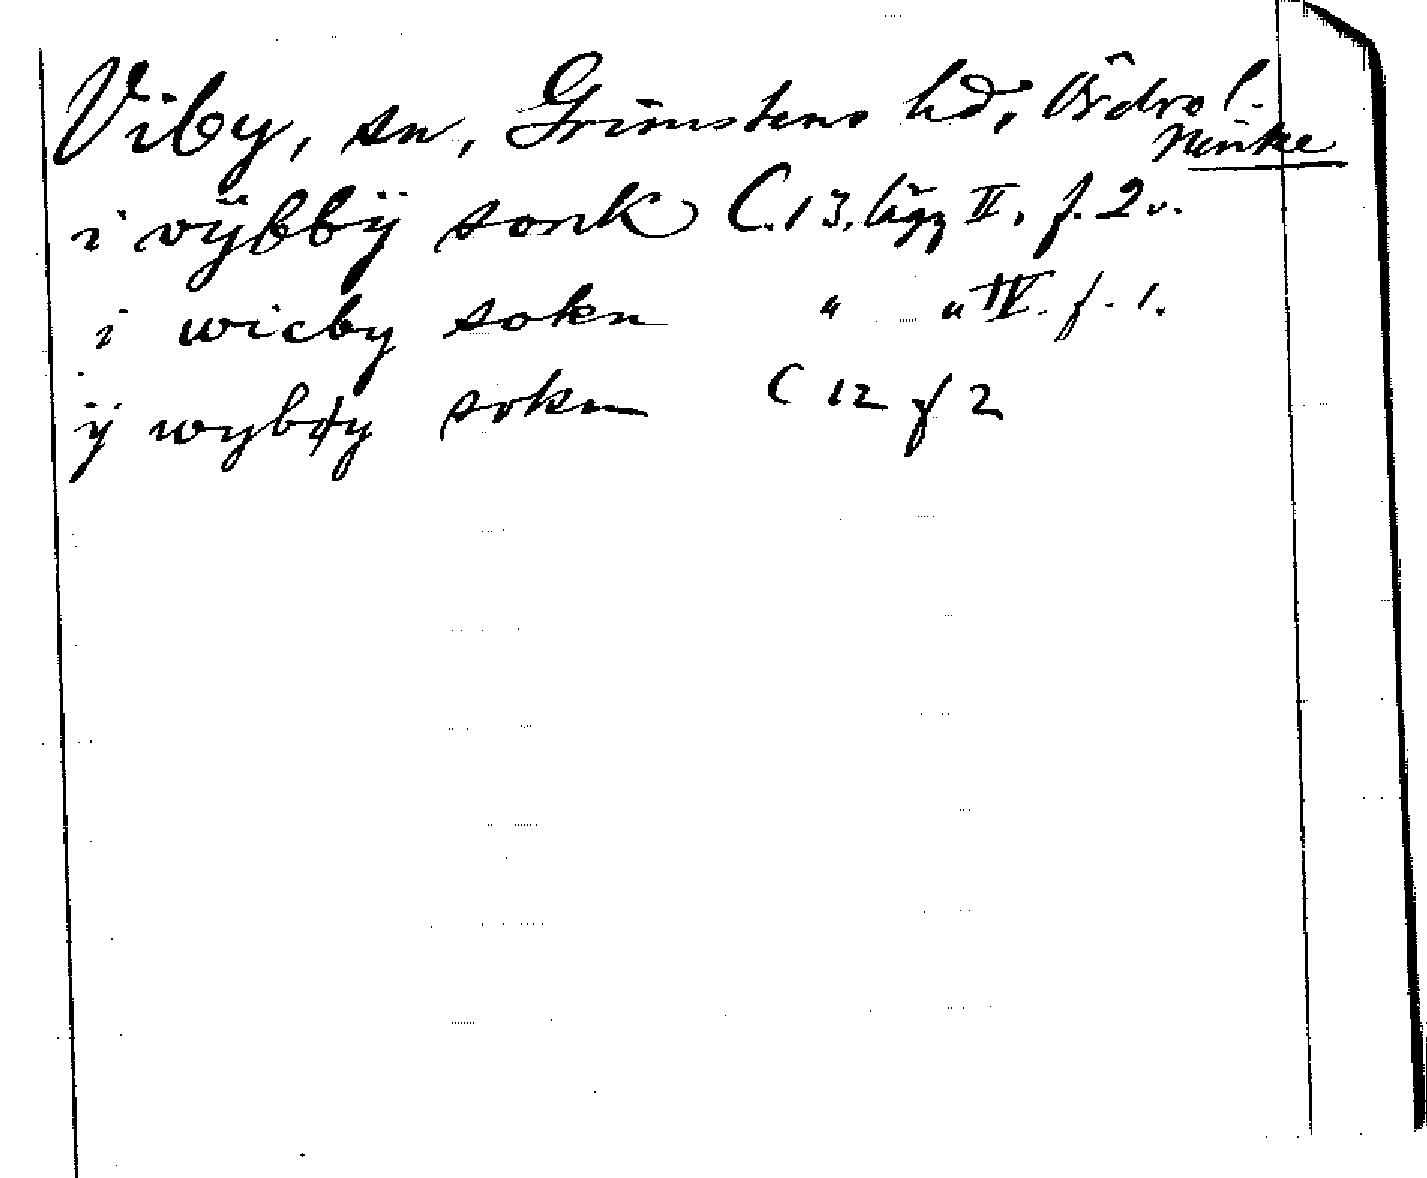 Viby, sn, Grimstens hd, Örebro l.
Nerike
i vÿbbÿ sonk C. 13. lägg II, f. 2 v.
i wicby sokn " " IV. f. 1.
ÿ wyby sokn C 12 f 2